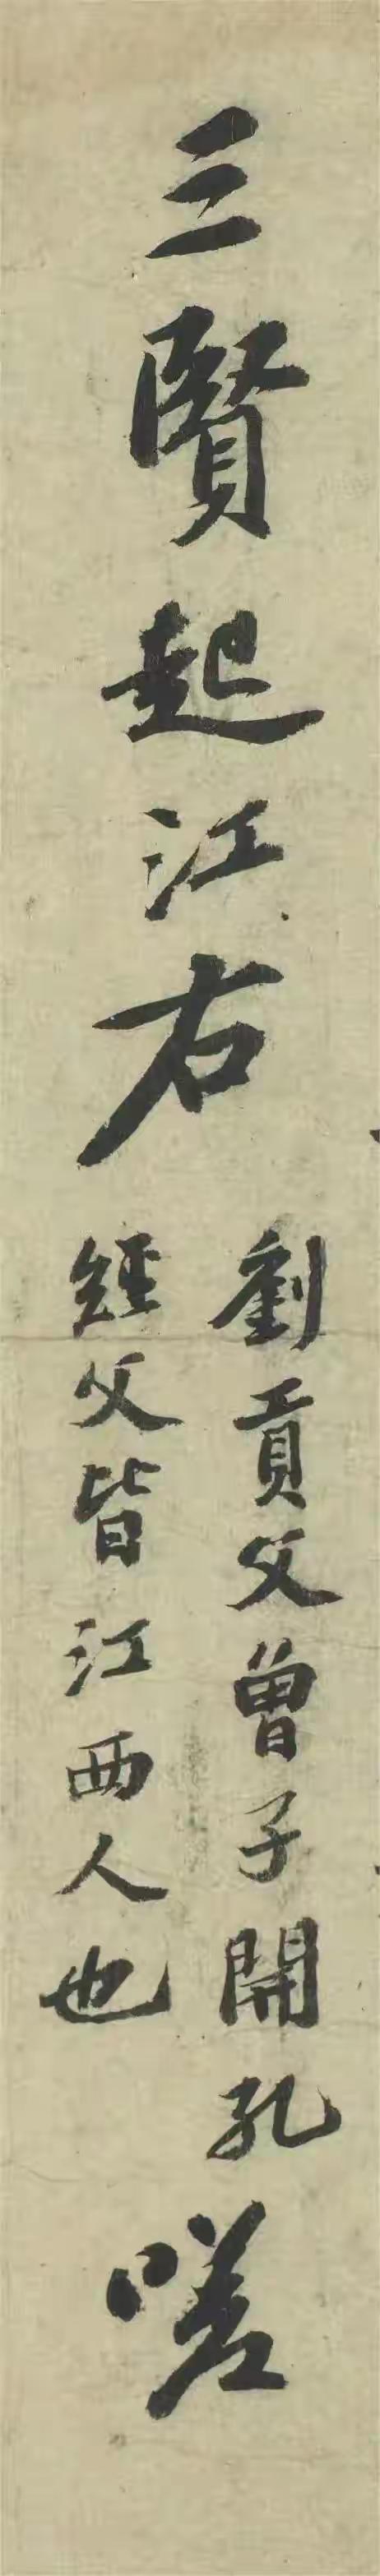 三賢起江右
劉貢父曾子開孔
經父皆江西人也
嗟